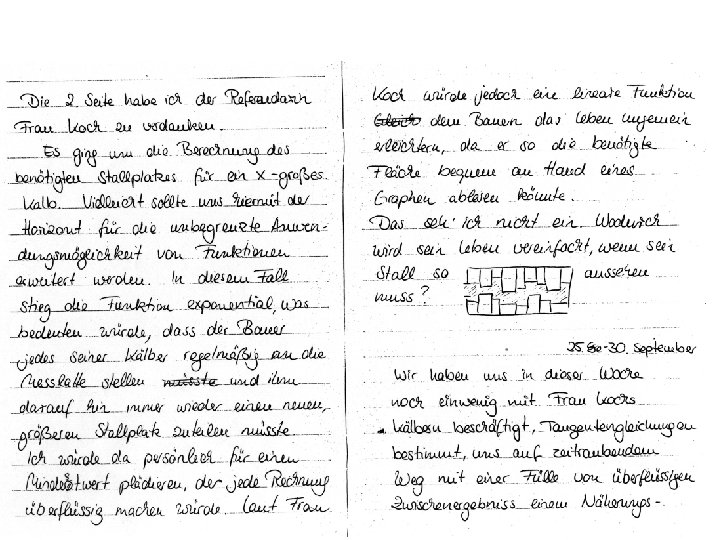 Die 2. Seite habe ich der Referendarin
Frau Koch zu verdanken.
Es ging um die Berechnung des
benötigten Stallplatzes für ein x-großes
Kalb. Vielleicht sollte uns hiermit der
Horizont für die unbegrenzte Anwen-
dungsmöglichkeit von Funktionen
erweitert werden. In diesem Fall
stieg die Funktion exponential, was
bedeuten würde, dass der Bauer
jedes seiner Kälber regelmäßig an die
Messlatte stellen müsste und ihm
darauf hin immer wieder einen neuen,
größeren Stallplatz zuteilen müsste.
Ich würde da persönlich für einen
Mindestwert plädieren, der jede Rechnung
überflüssig machen würde. Laut Frau
Koch würde jedoch eine lineare Funktion
dem Bauern das Leben ungemein
erleichtern, da er so die benötigte
Fläche bequem an Hand eines
Graphen ablesen könnte.
Das seh' ich nicht ein. Wodurch
wird sein Leben vereinfacht, wenn sein
Stall so aussehen
muss?
25. -30. September
Wir haben uns in dieser Woche
noch einwenig mit Frau Kochs
Kälbern beschäftigt, Tangentengleichungen
bestimmt, uns auf zeitraubendem
Weg mit einer Fülle von überflüssigen
Zwischenergebniss einem Näherungs-